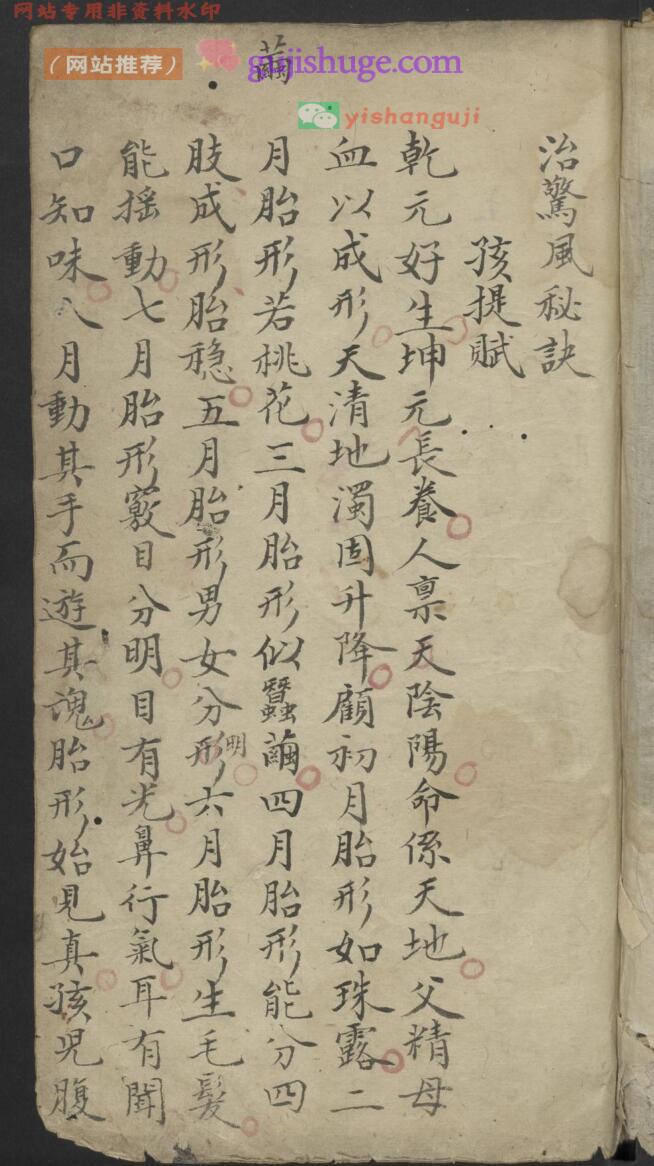 网站专用非资料水印
（网站推荐） gujishuge.com
yishanguji
繭
治驚風秘訣
孩提賦
乾元好生坤元長養人禀天陰陽命係天地父精母
血以成形天清地濁固升降顧初月胎形如珠露二
月胎形若桃花三月胎形似蠶繭四月胎形能分四
肢成形胎穏五月胎形男女分形明六月胎形生毛髮
能揺動七月胎形竅目分明目有光鼻行氣耳有聞
口知味八月動其手而遊其魂胎形始見真孩児腹